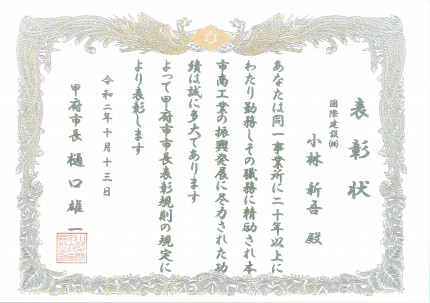 表彰状
國際建設㈱
小林新吾殿
あなたは同一事業所に二十年以上に
わたり勤務しその職務に精励され本
市商工業の振興発展に尽力された功
績は誠に多大であります
よって甲府市市長表彰規則の規定に
より表彰します
令和二年十月十三日
甲府市長 樋口雄一